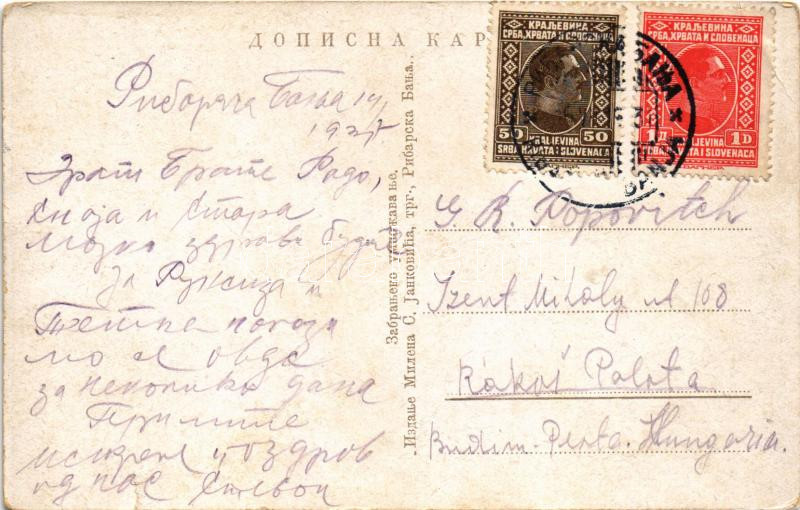 ДОПИСНА КАР
КРАЉЕВИНА
СРБА, ХРВАТА И СЛОВЕНАЦА
50 50
KRALJEVINA
SRBA HRVATA I SLOVENACA
КРАЉЕВИНА
СРБА, ХРВАТА И СЛОВЕНАЦА
1D
KRALJEVINA
SRBA, HRVATA I SLOVENACA
БАЊА
BANJA
Бања
1927
Драги Брате Радо,
и стара
здрава
за Ружица и
Тетка
мо се овде
за неколико дана
Примите
искрен поздрав
од нас Стевон
Забрањено умножавање.
Издање Милена С. Јанковића, трг., Рибарска Бања.
G. R. Popovitch
Szent Mihaly ut 108
Rakoš Palota
Budim-Pesta. Hungaria.